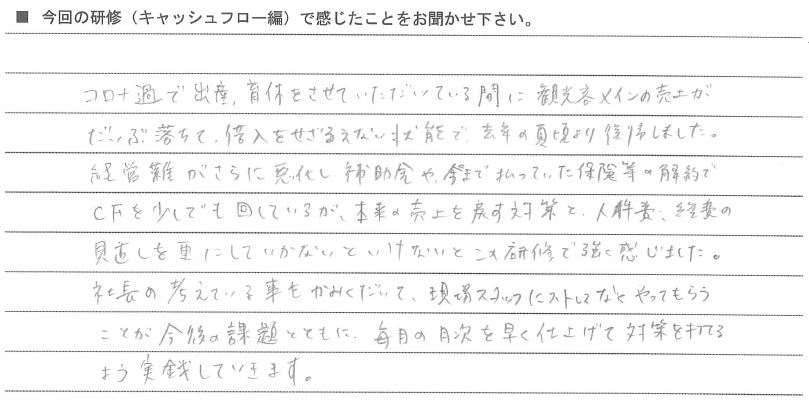 ■ 今回の研修（キャッシュフロー編）で感じたことをお聞かせ下さい。
コロナ過で出産,育休をさせていただいている間に観光客メインの売上が
だいぶ落ちて、借入をせざるえない状態で、去年の夏頃より復帰しました。
経営難がさらに悪化し補助金や、今まで払っていた保険等の解約で
CFを少しでも回しているが、本来の売上を戻す対策と、人件費、経費の
見直しを更にしていかないといけないとこの研修で強く感じました。
社長の考えている事をかみくだいて、現場スタッフにストレスなくやってもらう
ことが今後の課題とともに、毎月の月次を早く仕上げて対策を打てる
よう実践していきます。